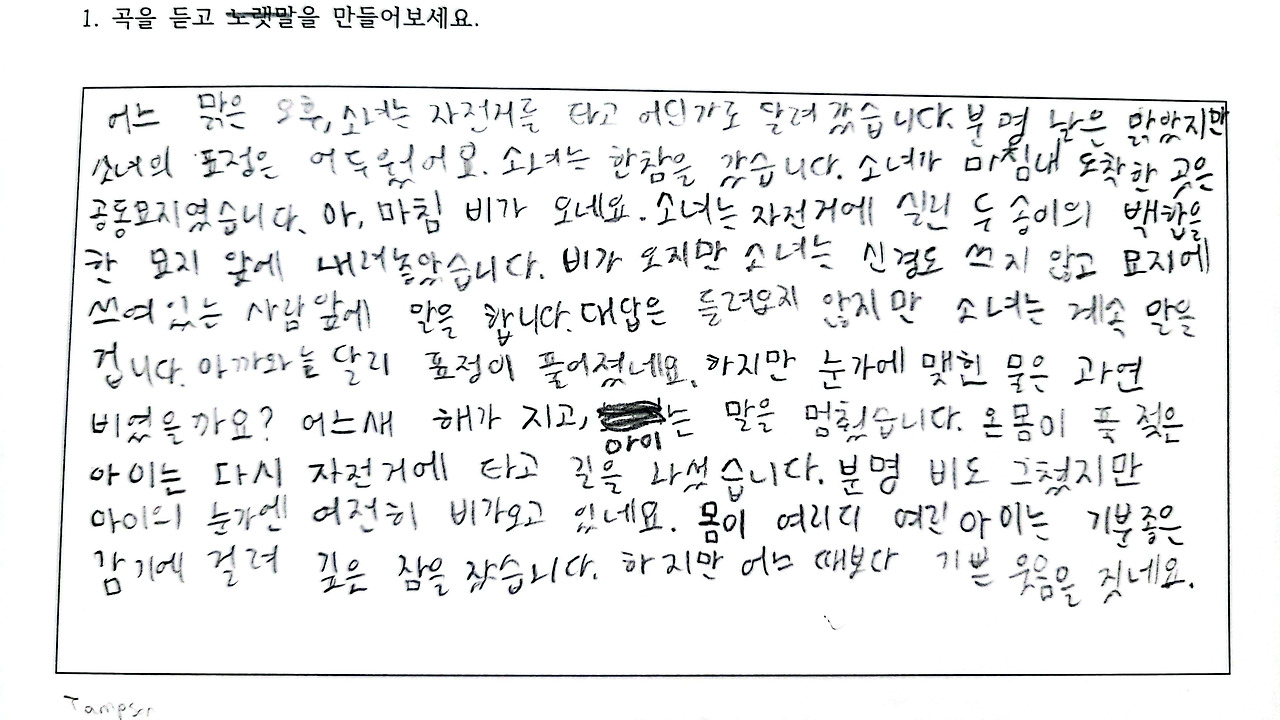 1. 곡을 듣고 노랫말을 만들어보세요.
어느 맑은 오후, 소녀는 자전거를 타고 어딘가로 달려 갔습니다. 분명 날은 맑았지만
소녀의 표정은 어두웠어요. 소녀는 한참을 갔습니다. 소녀가 마침내 도착한 곳은
공동묘지였습니다. 아, 마침 비가 오네요. 소녀는 자전거에 실린 두 송이의 백합을
한 묘지 앞에 내려놓았습니다. 비가 오지만 소녀는 신경도 쓰지 않고 묘지에
쓰여있는 사람앞에 말을 합니다. 대답은 들려오지 않지만 소녀는 계속 말을
겁니다. 아까와는 달리 표정이 풀어졌네요. 하지만 눈가에 맺힌 물은 과연
비였을까요? 어느새 해가 지고, 아이는 말을 멈췄습니다. 온몸이 푹 젖은
아이는 다시 자전거에 타고 길을 나섰습니다. 분명 비도 그쳤지만
아이의 눈가엔 여전히 비가오고 있네요. 몸이 여리디 여린 아이는 기분좋은
감기에 걸려 깊은 잠을 잤습니다. 하지만 어느 때보다 기쁜 웃음을 짓네요.